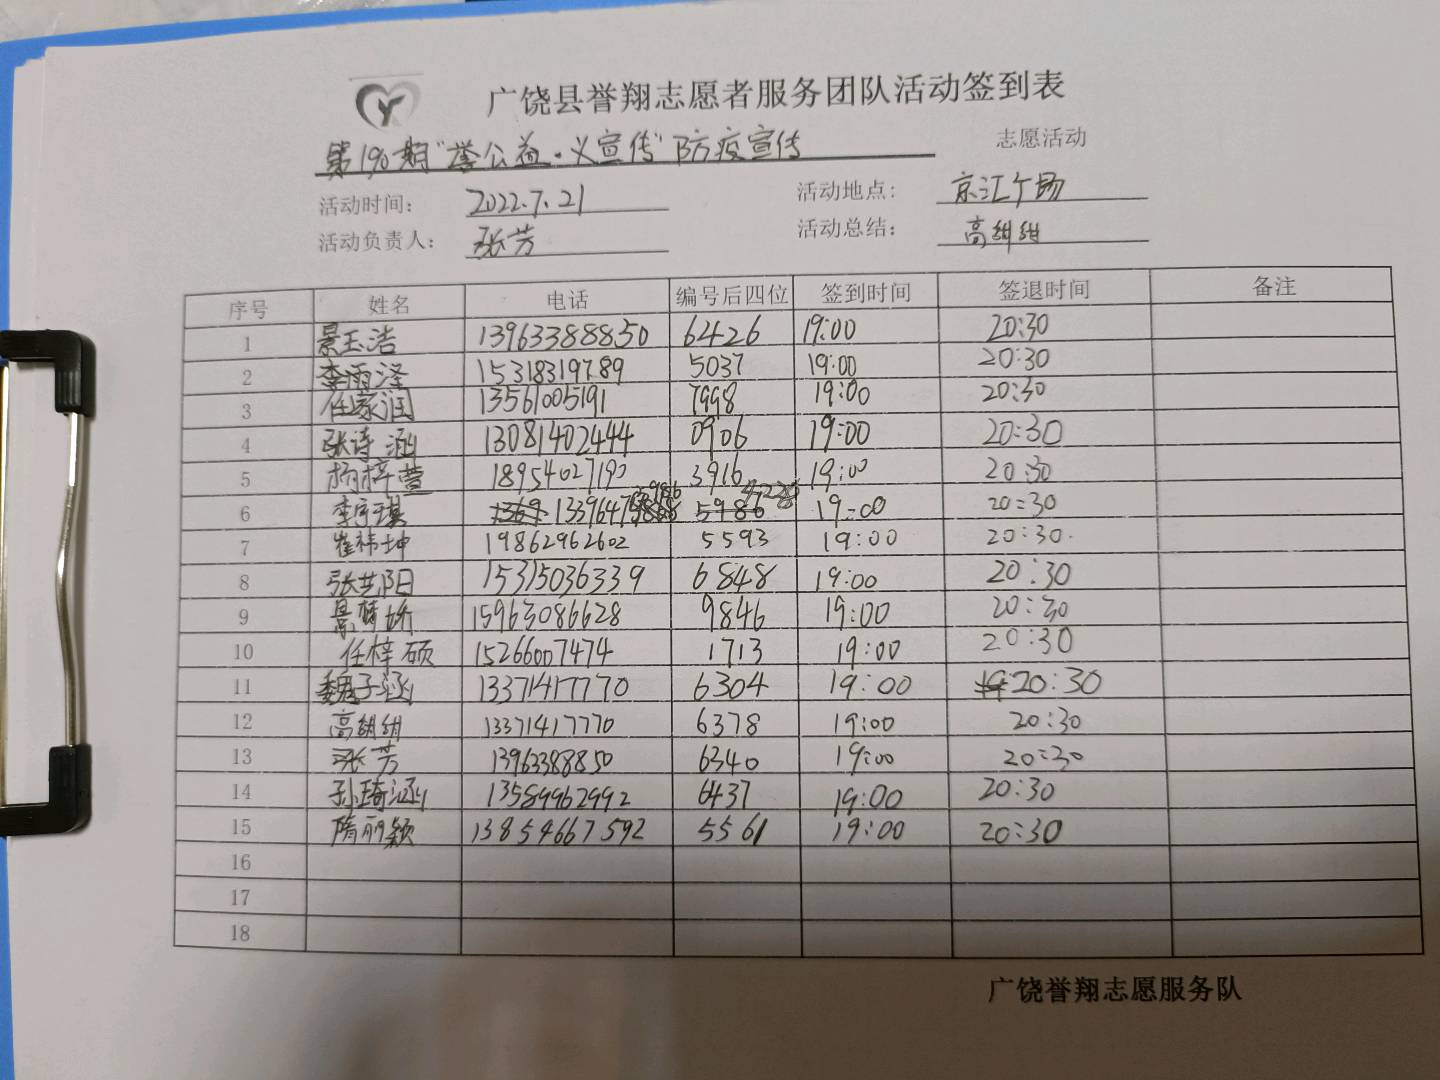 广饶县誉翔志愿者服务团队活动签到表
第190期"誉公益·义宣传"防疫宣传 志愿活动
活动时间： 2022.7.21 活动地点： 京汇广场
活动负责人： 张芳 活动总结： 高甜甜
序号 姓名 电话 编号后四位 签到时间 签退时间 备注
1 景玉浩 13963388850 6426 19:00 20:30
2 李雨泽 15318319789 5037 19:00 20:30
3 任家润 13561005191 7998 19:00 20:30
4 张诗涵 13081402444 0906 19:00 20:30
5 杨梓萱 18954027190 3916 19:00 20:30
6 李宇琪 19:00 20:30
7 崔祎坤 19862962602 5593 19:00 20:30
8 张艺阳 15315036339 6848 19:00 20:30
9 景 娇 15963086628 9846 19:00 20:30
10 任梓硕 15266007474 1713 19:00 20:30
11 魏子涵 13371417770 6304 19:00 20:30
12 高甜甜 13371417770 6378 19:00 20:30
13 张芳 13963388850 6340 19:00 20:30
14 孙琦涵 13589962992 6437 19:00 20:30
15 隋丽颖 13854667592 5561 19:00 20:30
16
17
18
广饶誉翔志愿服务队